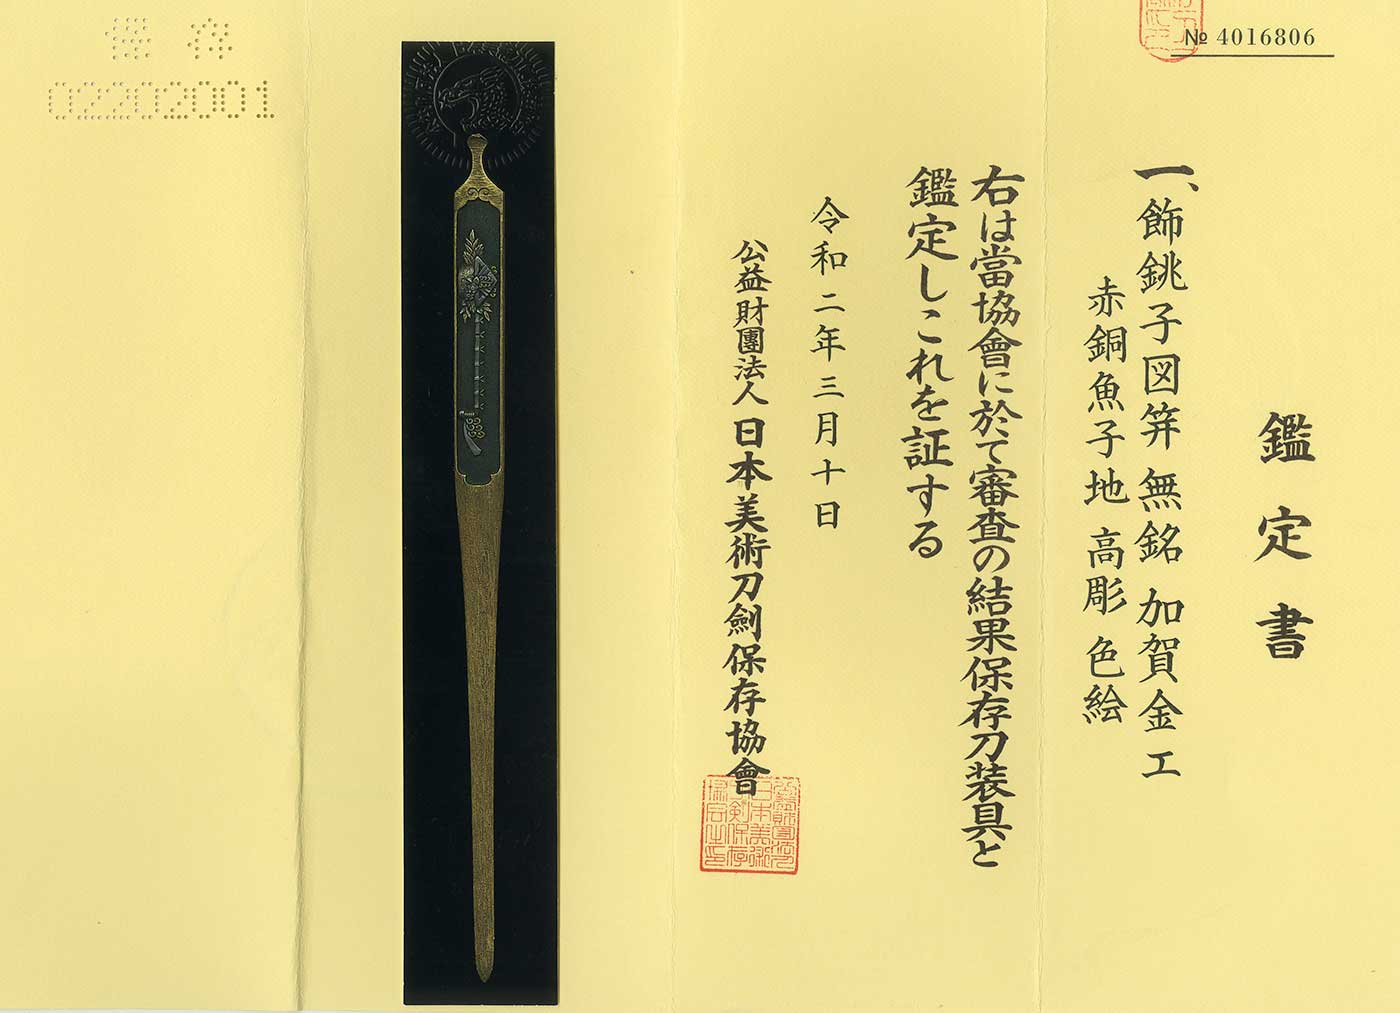 № 4016806
鑑定書
一、飾銚子図笄 無銘 加賀金工
赤銅魚子地 高彫 色絵
右は當協會に於て審査の結果保存刀装具と
鑑定しこれを証する
令和二年三月十日
公益財團法人 日本美術刀劍保存協會
保存
02202001